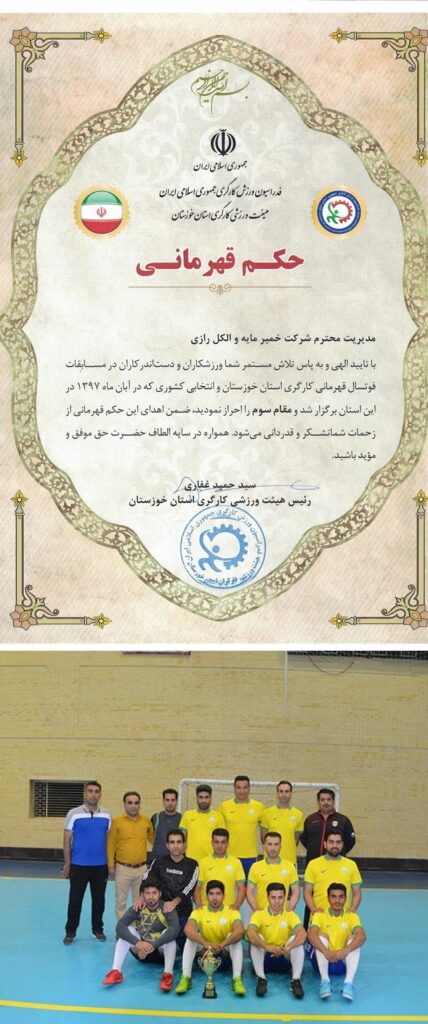 بسم الله الرحمن الرحیم
جمهوری اسلامی ایران
فدراسیون ورزش کارگری جمهوری اسلامی ایران
هیئت ورزشی کارگری استان خوزستان
حکم قهرمانی
مدیریت محترم شرکت خمیر مایه و الکل رازی
با تایید الهی و به پاس تلاش مستمر شما ورزشکاران و دست‌اندرکاران در مسابقات
فوتسال قهرمانی کارگری استان خوزستان و انتخابی کشوری که در آبان ماه ۱۳۹۷ در
این استان برگزار شد و مقام سوم را احراز نمودید، ضمن اهدای این حکم قهرمانی از
زحمات شما تشکر و قدردانی می‌شود. همواره در سایه الطاف حضرت حق موفق و
مؤید باشید.
سید حمید غفاری
رئیس هیئت ورزشی کارگری استان خوزستان
فدراسیون ورزش کارگری جمهوری اسلامی ایران
هیئت ورزشی کارگران استان خوزستان
adidas